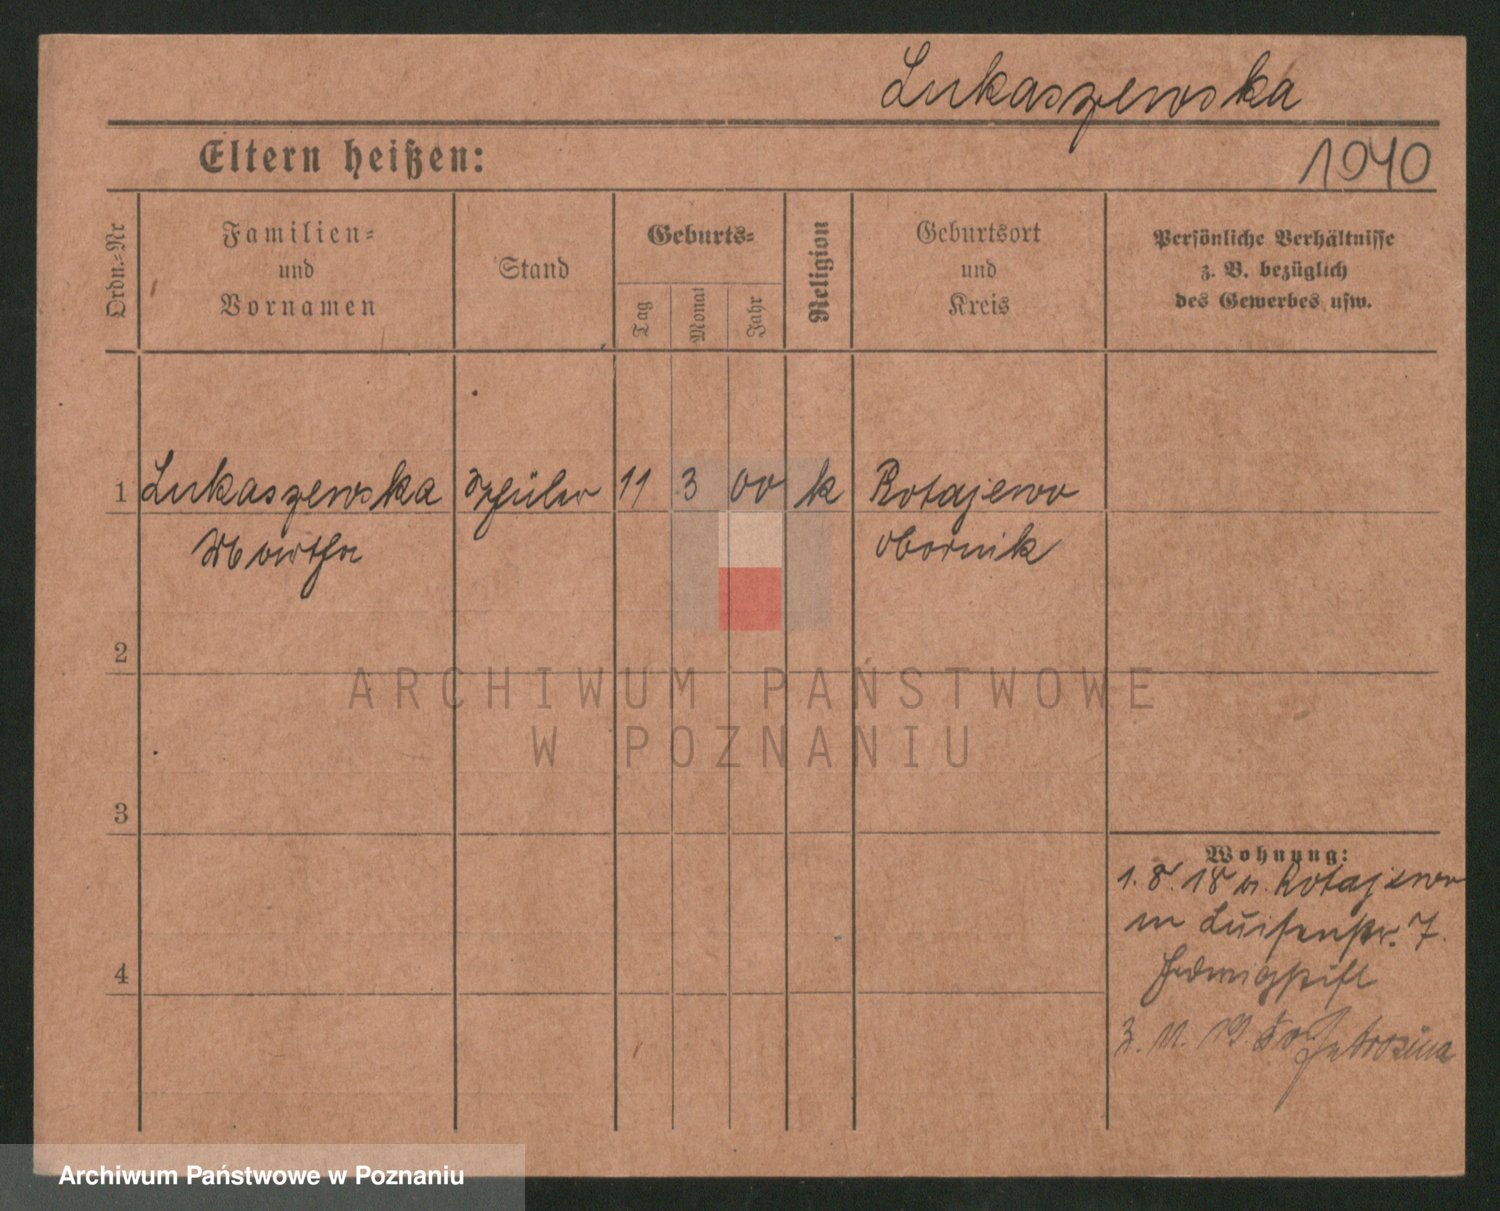 Lukaszewska
Eltern heißen:
1940
Ordn.-Nr
Familien-
und
Vornamen
Stand
Geburts-
Tag
Monat
Jahr
Religion
Geburtsort
und
Kreis
Persönliche Verhältnisse
z. B. bezüglich
des Gewerbes usw.
1 Lukaszewska Schüler 11 3 00 k Rotajewo
Martha Obornik
2
3
4
Wohnung:
1. 8. 18 v. Rotajewo
in Luisenstr. 7.
Hedwigstift
3. 11. 19.
ARCHIWUM PAŃSTWOWE
W POZNANIU
Archiwum Państwowe w Poznaniu